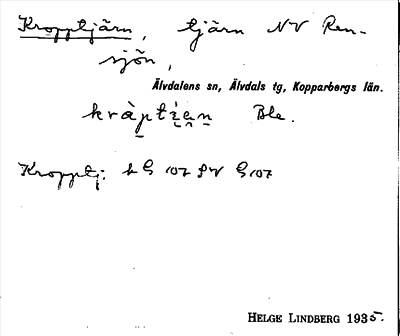 Kropptjärn, tjärn NV Ren-
sjön,
Älvdalens sn, Älvdals tg, Kopparbergs län.
kràptịạṇ Ble.
Kropptj.
HELGE LINDBERG 1935.